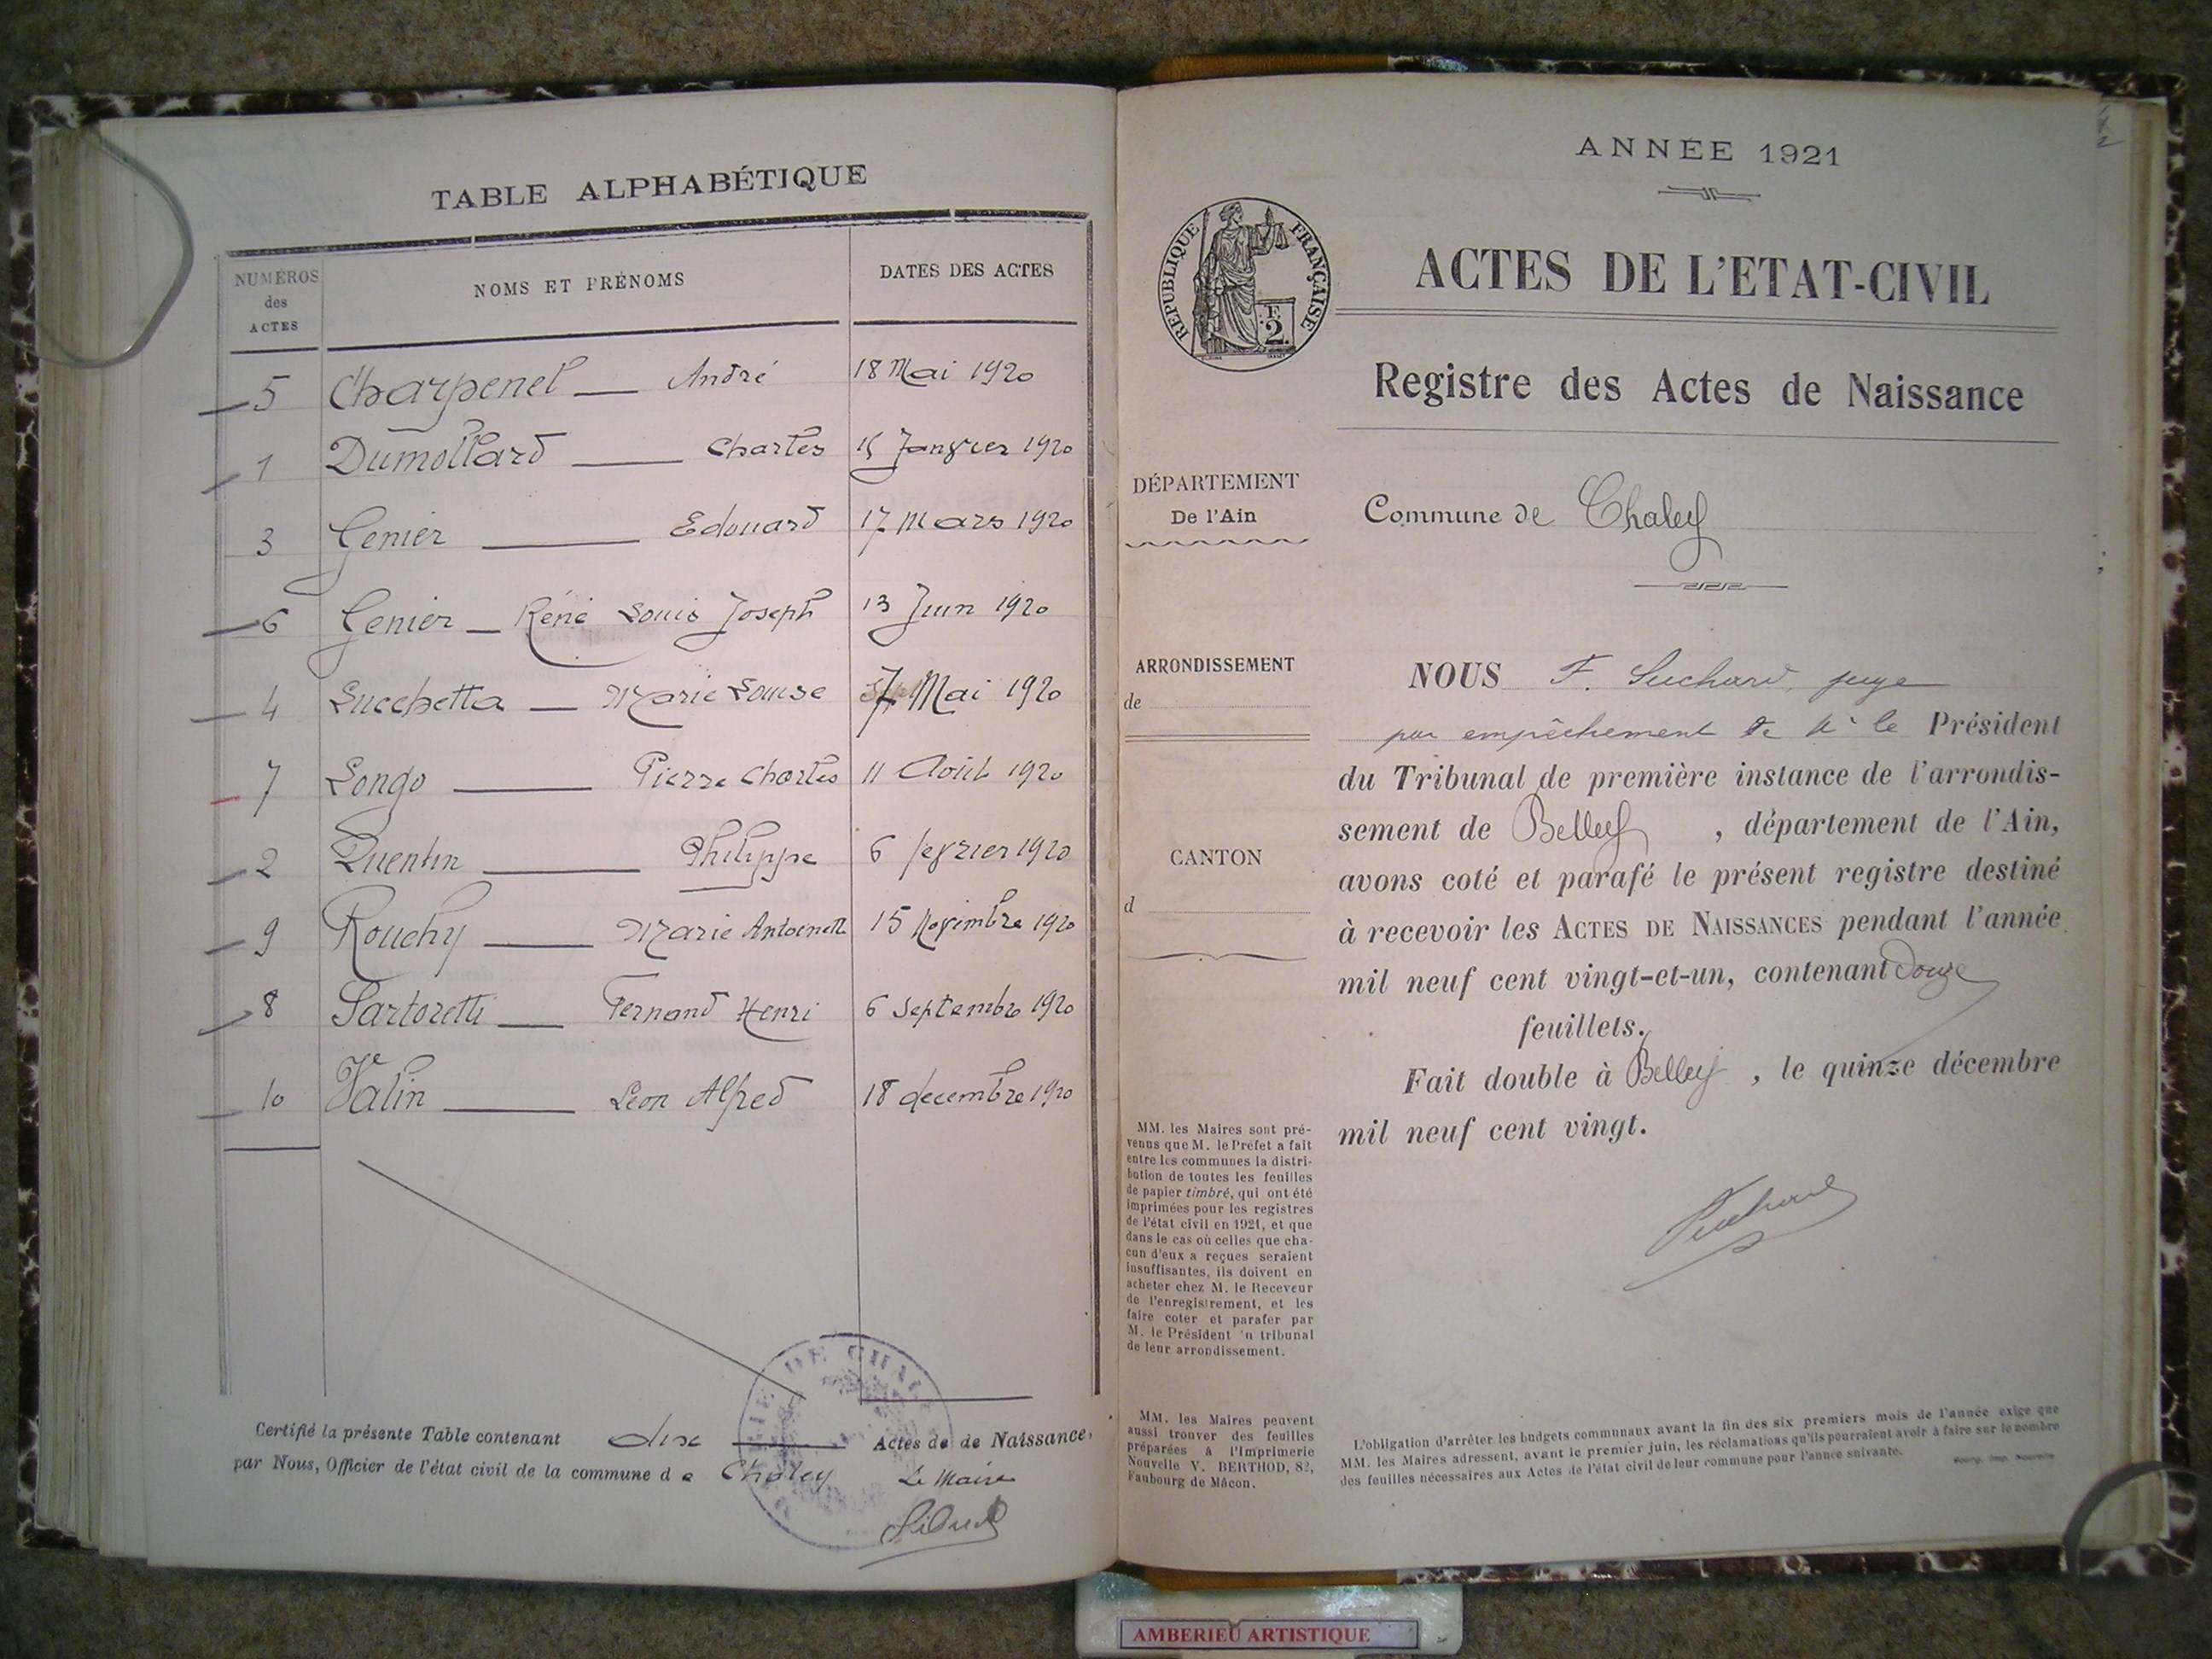 TABLE ALPHABÉTIQUE
NUMÉROS des ACTES NOMS ET PRÉNOMS DATES DES ACTES
5 Charpenel André 18 Mai 1920
1 Dumollard Charles 15 Janvier 1920
3 Genier Edouard 17 Mars 1920
6 Genier Réné Louis Joseph 13 Juin 1920
4 Lucchetta Marie Louise 7 Mai 1920
7 Longo Pierre Charles 11 Août 1920
2 Quentin Philippe 6 fevrier 1920
9 Rouchy Marie Antoinette 15 Novembre 1920
8 Sartoretti Fernand Henri 6 Septembre 1920
10 Valin Léon Alfred 18 decembre 1920
Certifié la présente Table contenant dix Actes de de Naissance,
par Nous, Officier de l'état civil de la commune d e Chaley
Le Maire
ANNÉE 1921
RÉPUBLIQUE FRANÇAISE
2 F.
ACTES DE L'ETAT-CIVIL
Registre des Actes de Naissance
DÉPARTEMENT
De l'Ain
Commune de Chaley
ARRONDISSEMENT
de
CANTON
d
NOUS F. Suchard, juge
par empêchement de Mr le Président
du Tribunal de première instance de l'arrondis-
sement de Belley , département de l'Ain,
avons coté et parafé le présent registre destiné
à recevoir les ACTES DE NAISSANCES pendant l'année
mil neuf cent vingt-et-un, contenant Douze
feuillets.
Fait double à Belley , le quinze décembre
mil neuf cent vingt.
Suchard
MM. les Maires sont pré-
venus que M. le Préfet a fait
entre les communes la distri-
bution de toutes les feuilles
de papier timbré, qui ont été
imprimées pour les registres
de l'état civil en 1921, et que
dans le cas où celles que cha-
cun d'eux a reçues seraient
insuffisantes, ils doivent en
acheter chez M. le Receveur
de l'enregistrement, et les
faire coter et parafer par
M. le Président 'n tribunal
de leur arrondissement.
MM. les Maires peuvent
aussi trouver des feuilles
préparées à l'Imprimerie
Nouvelle V. BERTHOD, 82,
Faubourg de Mâcon.
L'obligation d'arrêter les budgets communaux avant la fin des six premiers mois de l'année exige que
MM. les Maires adressent, avant le premier juin, les réclamations qu'ils pourraient avoir à faire sur le nombre
des feuilles nécessaires aux Actes de l'état civil de leur commune pour l'année suivante.
Bourg, Imp. Nouvelle
AMBERIEU ARTISTIQUE